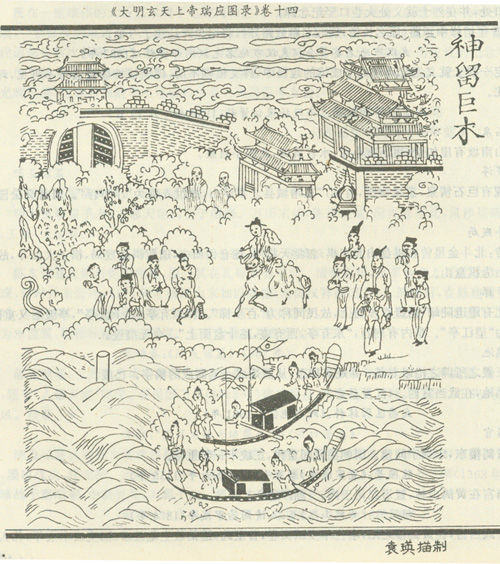 《大明玄天上帝瑞应图录》卷十四
神留巨木
袁瑛描制